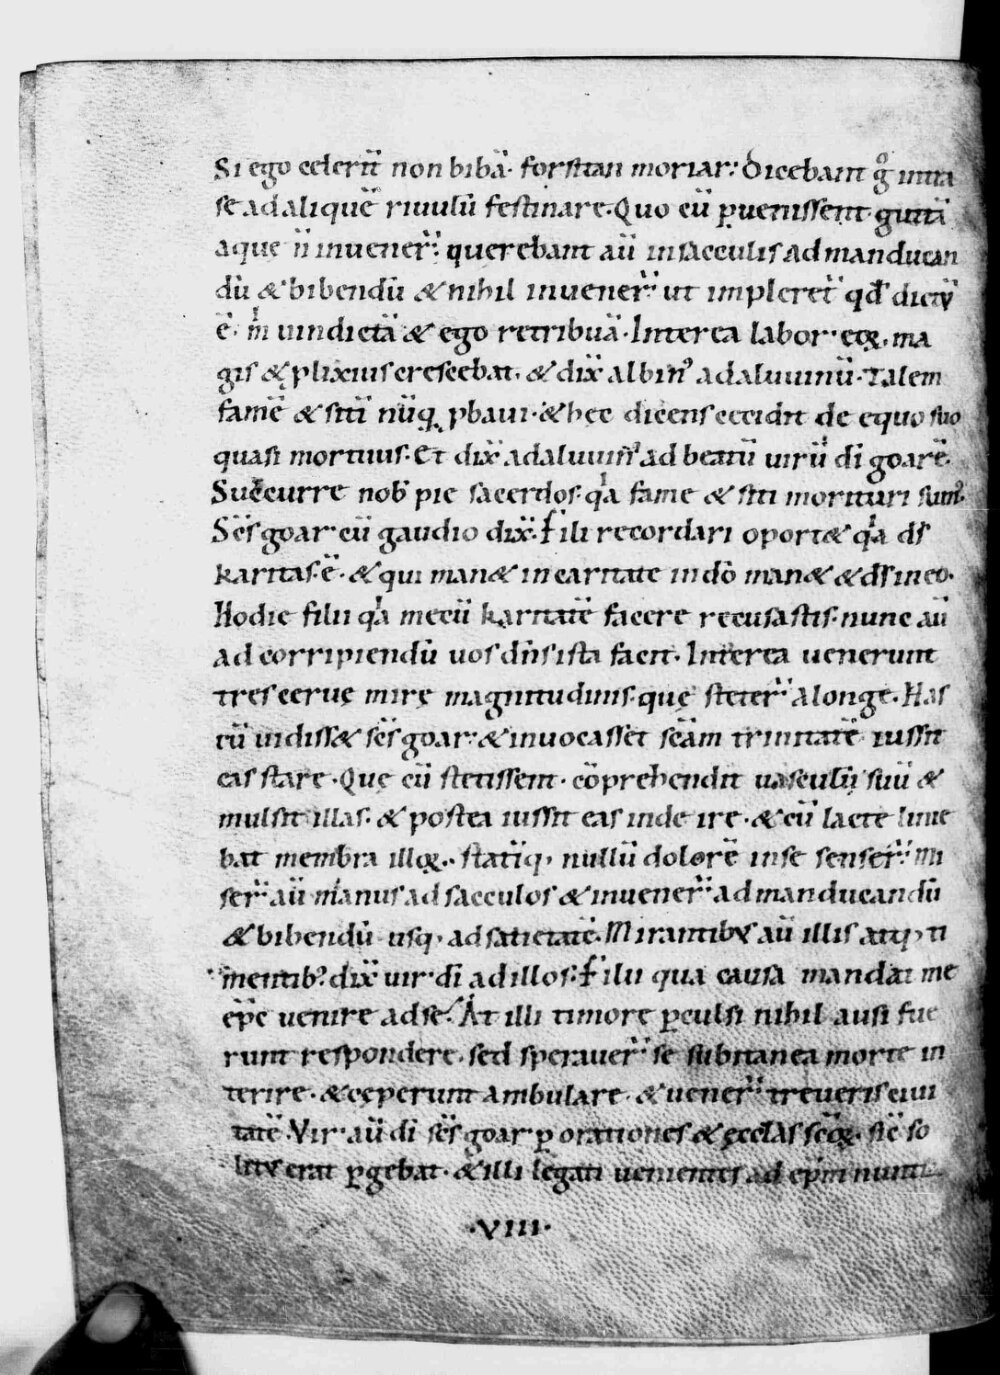 Si ego celeriṫ non bibā. forsitan moriar: Dicebant gͦ intra
se ad aliquē riuulū festinare. Quo cū puenissent guttā
aque n̄ inuener̄: querebant aū in sacculis ad manducan
dū & bibendū & nihil inuener̄: ut impleret̄ qđ dictū
ē. m̍ uindictā & ego retribuā. Interea labor eoꝝ. ma
gis & ꝓlixius crescebat. & dix̄ albinꝰ adaluuinū. Talem
famē & sitī nūq ꝓbaui. & hec dicens cecidit de equo suo
quasi mortuus. Et dix̄ adaluuinꝰ ad beatū uirū di goarē.
Succurre nob̄ pie sacerdos. qͥa fame & siti morituri sumꝰ.
Scs̄ goar cū gaudio dix̄. fili recordari oport& qͥa ds̄
karitas ē. & qui man& in caritate in dō man& & ds̄ in eo.
Hodie filii qͥa mecū karitatē facere recusastis. nunc aū
ad corripiendū uos dn̄s ista facit. Interea uenerunt
tres ceruę mirę magnitudinis. quę steter̄ a longe. Has
cū uidiss& scs̄ goar: & inuocasset scām trinitatē iussit
eas stare. Quę cū stetissent. cōprehendit uasculū suū &
mulsit illas. & postea iussit eas inde ire. & cū lacte linie
bat membra illoꝝ. statīq; nullū dolorē in se senser̄: Mi
ser̄ aū manus ad sacculos & inuener̄ ad manducandū
& bibendū usq; ad satietatē. Mirantibꝰ aū illis atq; ti
mentibꝰ. dix̄ uir di ad illos. filii qua causa mandat me
ep̄c uenire ad se. At illi timore ꝑculsi nihil ausi fue
runt respondere. sed sperauer̄ se subitanea morte in
terire. & ceperunt ambulare & uener̄ treueris ciui
tatē. Vir aū di scs̄ goar ꝑ orationes & ęcclas scōꝝ. sic̄ so
litꝰ erat ꝑgebat. & illi legati uenientes ad epm̄ nunti
.VIII.